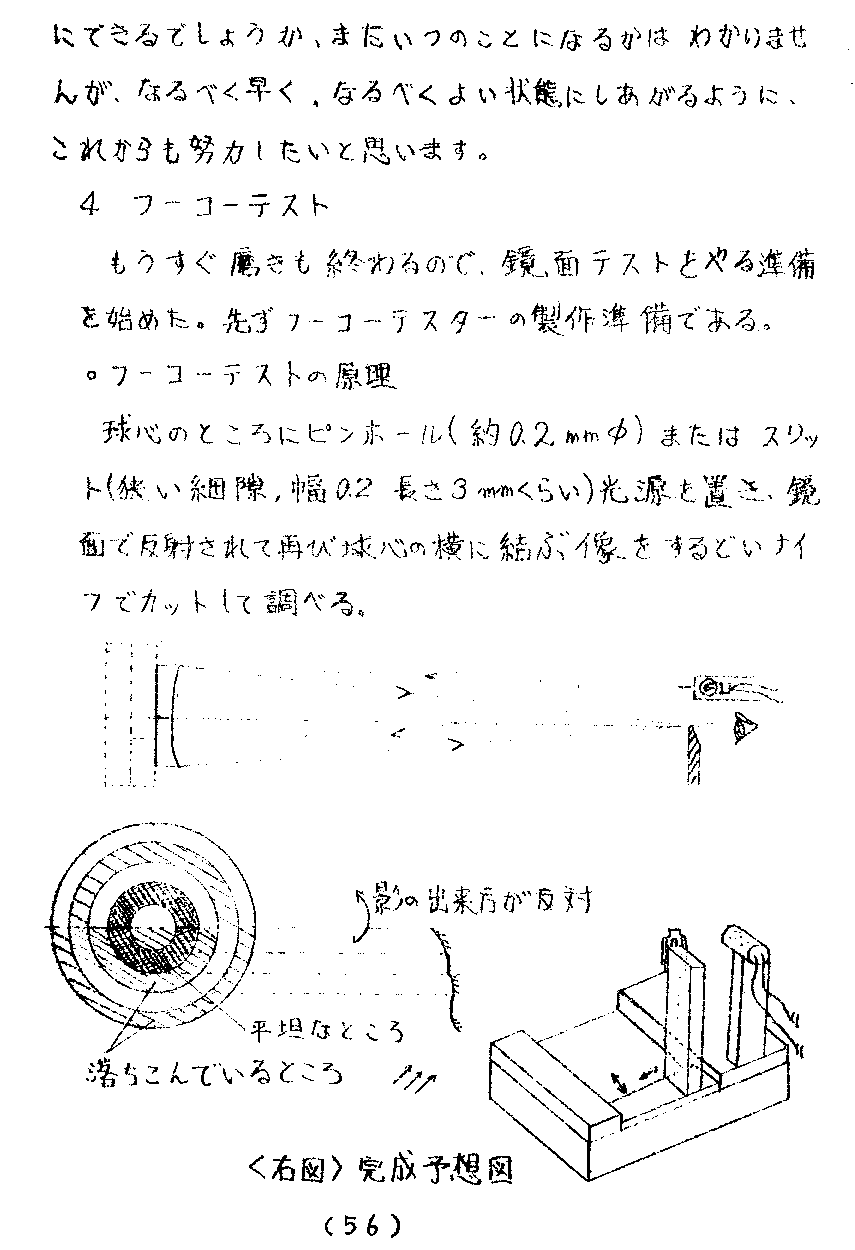 にできるでしょうか、またいつのことになるかは わかりませ
んが、なるべく早く、なるべくよい状態にしあがるように、
これからも努力したいと思います。
4 フーコーテスト
もうすぐ磨きも終わるので、鏡面テストをやる準備
を始めた。先ずフーコーテスターの製作準備である。
○フーコーテストの原理
球心のところにピンホール(約0.2mmφ)または スリッ
ト(狭い細隙,幅0.2 長さ3mmくらい)光源を置き、鏡
面で反射されて再び球心の横に結ぶ像をするどいナイ
フでカットして調べる。
影の出来方が反対
平坦なところ
落ちこんでいるところ
〈右図〉完成予想図
(56)